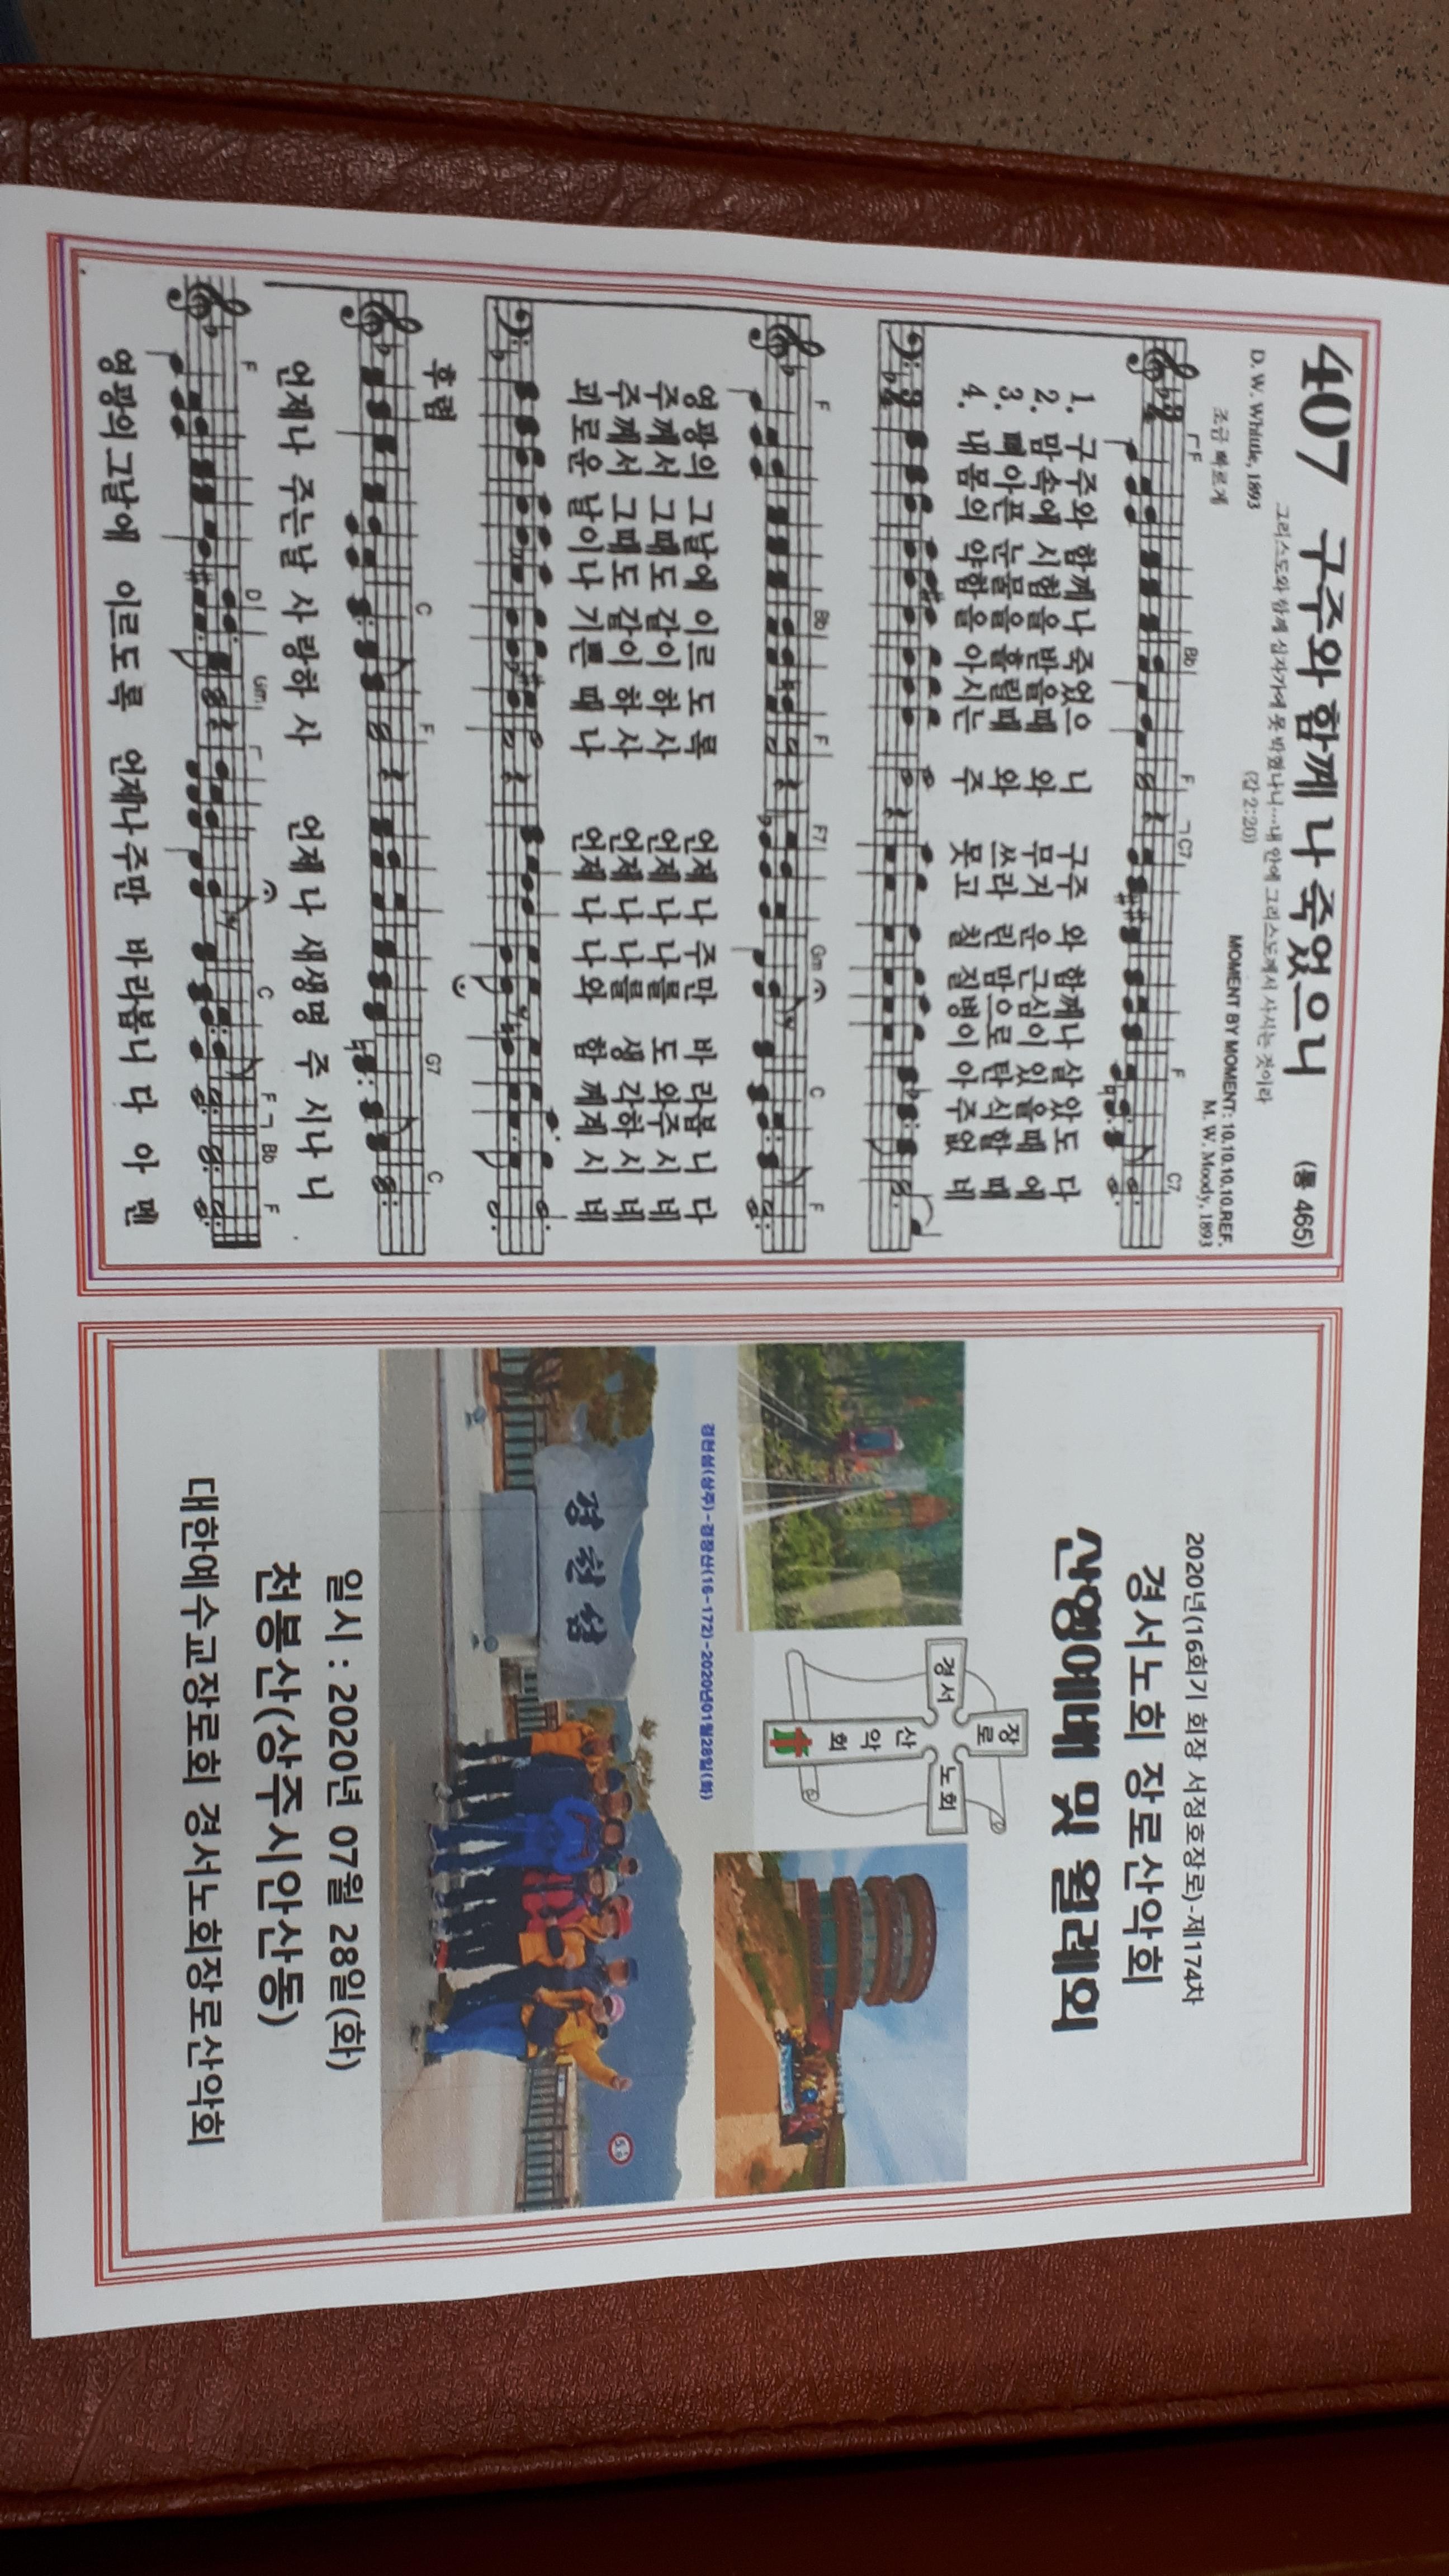 407 구주와 함께 나 죽었으니 (통 465)
그리스도와 함께 십자가에 못 박혔나니…내 안에 그리스도께서 사시는 것이라
(갈 2:20)
D. W. Whittle, 1893
MOMENT BY MOMENT: 10.10.10.10.REF.
조금 빠르게
M. W. Moody, 1893
F Bb F C7 F C7
1. 구주와 함께나 죽었으 니 구주 와 함께나 살 았 도 다
2. 맘속에 시험을 받을때 와 무거 운 근심이 있 을 때 에
3. 뼈아픈 눈물을 흘릴때 와 쓰라 린 맘으로 탄 식 할 때
4. 내몸의 약함을 아시는 주 못고 칠 질병이 아 주 없 네
F Bb F F7 Gm C F
영광의 그날에 이르 도 록 언제 나 주만 바 라봅 니 다
주께서 그때도 같이 하 사 언제 나 나를 도 와주 시 네
주께서 그때도 같이 하 사 언제 나 나를 생 각하 시 네
괴로운 날이나 기쁜 때 나 언제 나 나와 함 께계 시 네
후렴
C F G7 C
언제나 주는날 사 랑하 사 언제 나 새생명 주 시나 니
F D Gm F C F Bb F
영광의그날에 이르도록 언제나주만 바라봅니 다 아 멘
2020년(16회기 회장 서정호장로)-제174차
경서노회 장로산악회
산영예배 및 월례회
경서
장로
노회
산
악
회
경천섬(상주)-경장산(16-172)-2020년01월28일(화)
경천섬
일시 : 2020년 07월 28일(화)
천봉산(상주시안산동)
대한예수교장로회 경서노회장로산악회